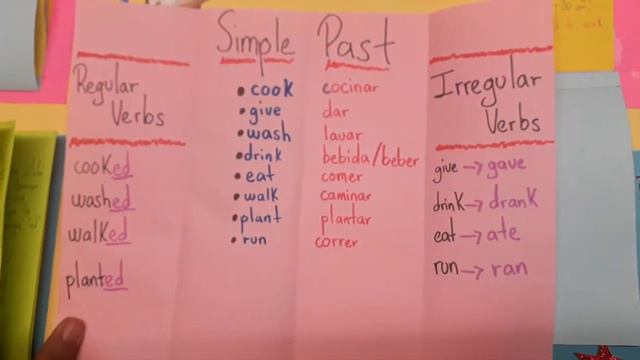 Simple Past
Regular
Verbs
cooked
washed
walked
planted
• cook cocinar
• give dar
• wash lavar
• drink bebida/beber
• eat comer
• walk caminar
• plant plantar
• run correr
Irregular
Verbs
give → gave
drink → drank
eat → ate
run → ran